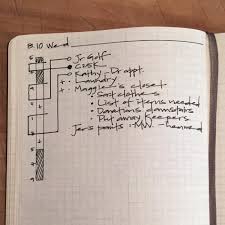 8.10 Wed
Jr. Golf
CSK
Kathy - Dr appt.
Laundry
Maggie's closet
Sort clothes
List of items needed
Donations downstairs
Put away keepers
Jen's pants - MW - hemmed